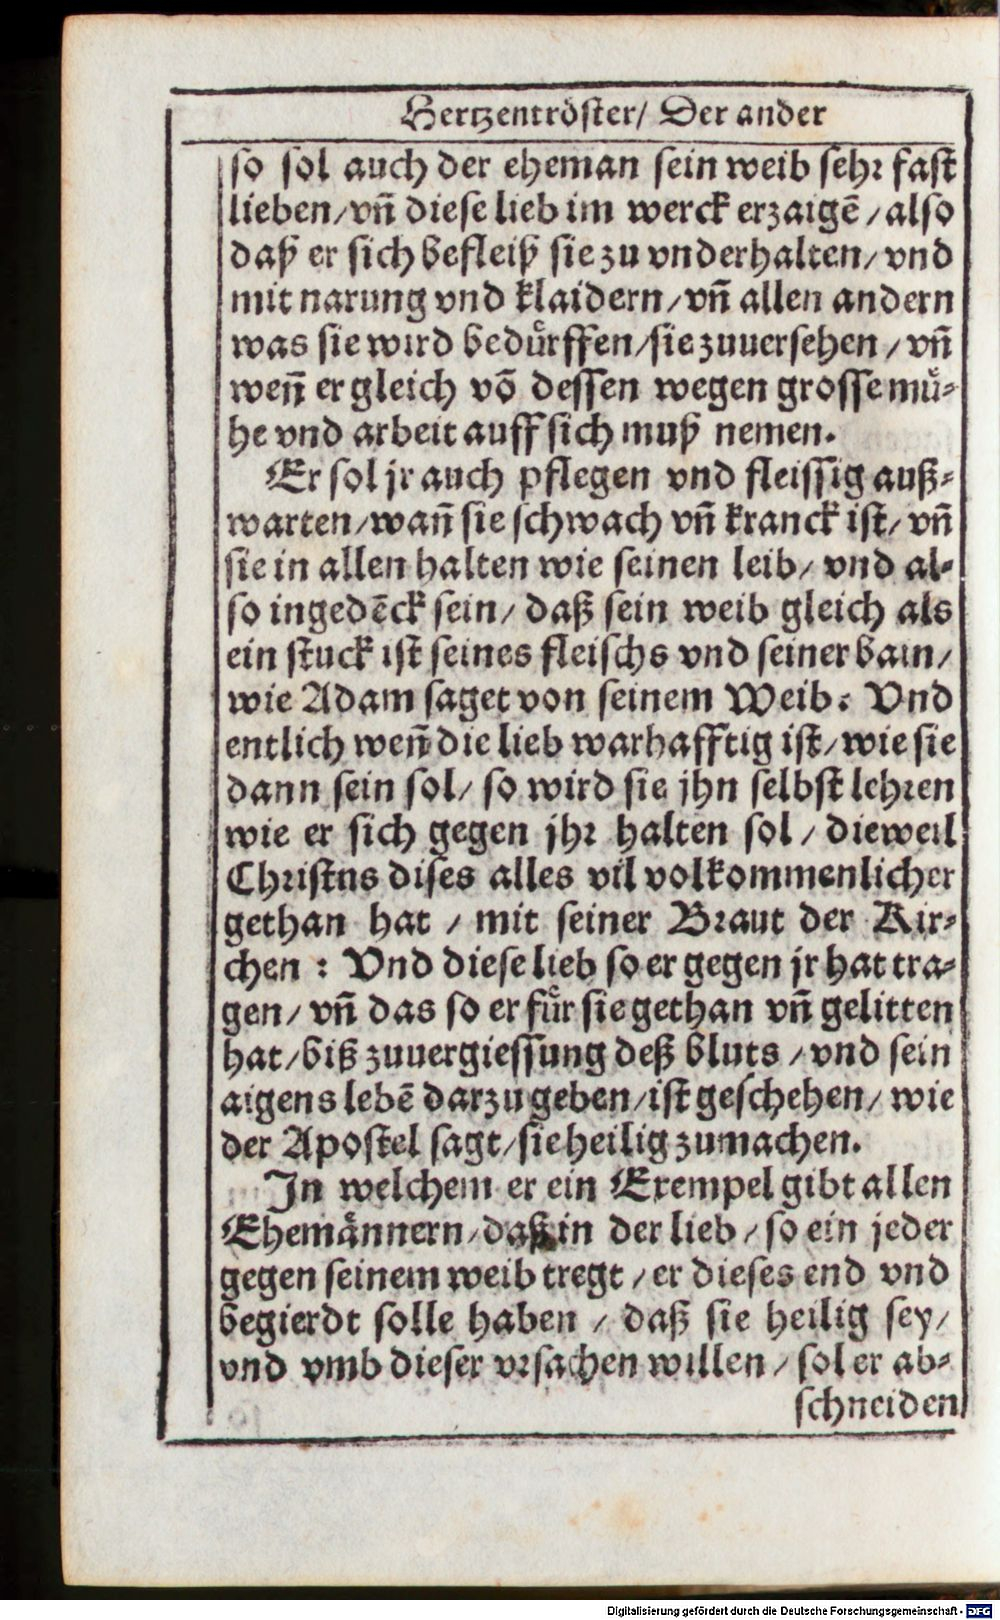 Hertzentröster/ Der ander
so sol auch der eheman sein weib sehr fast
lieben/vñ diese lieb im werck erzaigẽ/also
daß er sich befleiß sie zu vnderhalten/vnd
mit narung vnd klaidern/vñ allen andern
was sie wird bedürffen/sie zuuersehen/vñ
weñ er gleich võ dessen wegen grosse mü-
he vnd arbeit auff sich muß nemen.
Er sol jr auch pflegen vnd fleissig auß-
warten/wañ sie schwach vñ kranck ist/vñ
sie in allen halten wie seinen leib/ vnd al-
so ingedẽck sein/ daß sein weib gleich als
ein stuck ist seines fleischs vnd seiner bain/
wie Adam saget von seinem Weib: Vnd
entlich weñ die lieb warhafftig ist/wie sie
dann sein sol/ so wird sie jhn selbst lehren
wie er sich gegen jhr halten sol/dieweil
Christns dises alles vil volkommenlicher
gethan hat/mit seiner Braut der Kir-
chen: Vnd diese lieb so er gegen jr hat tra-
gen/vñ das so er für sie gethan vñ gelitten
hat/biß zuuergiessung deß bluts/vnd sein
aigens lebẽ darzu geben/ist geschehen/wie
der Apostel sagt/sie heilig zumachen.
In welchem er ein Exempel gibt allen
Ehemännern/daß in der lieb/so ein jeder
gegen seinem weib tregt/er dieses end vnd
begierdt solle haben/daß sie heilig sey/
vnd vmb dieser vrsachen willen/sol er ab-
schneiden
Digitalisierung gefördert durch die Deutsche Forschungsgemeinschaft - DFG